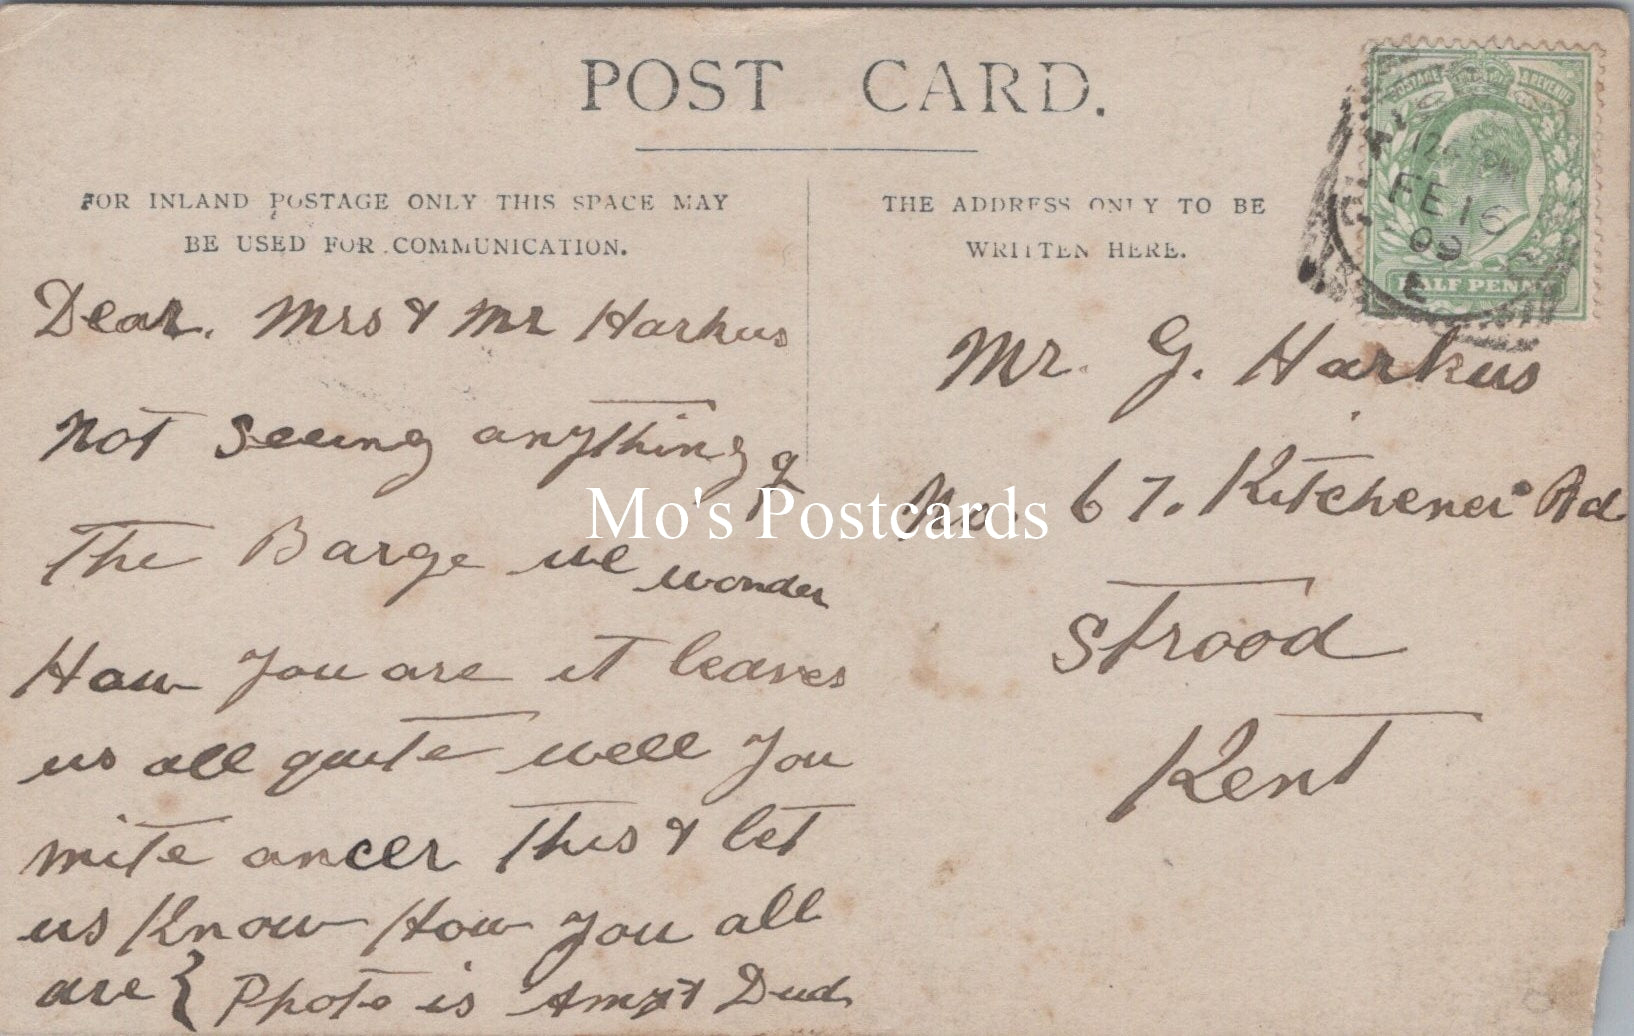 POST CARD.
FOR INLAND POSTAGE ONLY THIS SPACE MAY
BE USED FOR COMMUNICATION.
THE ADDRESS ONLY TO BE
WRITTEN HERE.
POSTAGE & REVENUE
12 PM
FE 16
09
HALF PENNY
Dear. Mrs & Mr Harkus
not seeing anything of
The Barge we wonder
How you are it leaves
us all quite well you
mite ancer This & let
us Know How you all
are } Photo is Amy & Dud
Mr. G. Harkus
No. 67. Kitchener Rd
Strood
Kent
Mo's Postcards